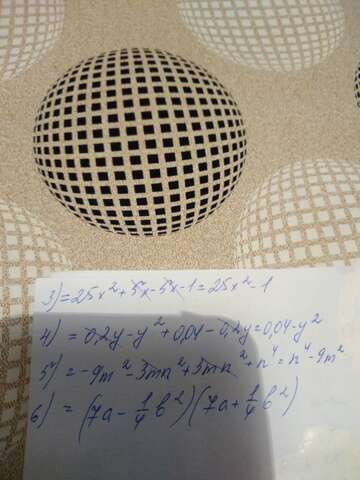 3) = 25x² + 5x - 5x - 1 = 25x² - 1
4) = 0,2y - y² + 0,04 - 0,2y = 0,04 - y²
5) = -9m² - 3mn² + 3mn² + n⁴ = n⁴ - 9m²
6) = (7a - 1/4 b²)(7a + 1/4 b²)